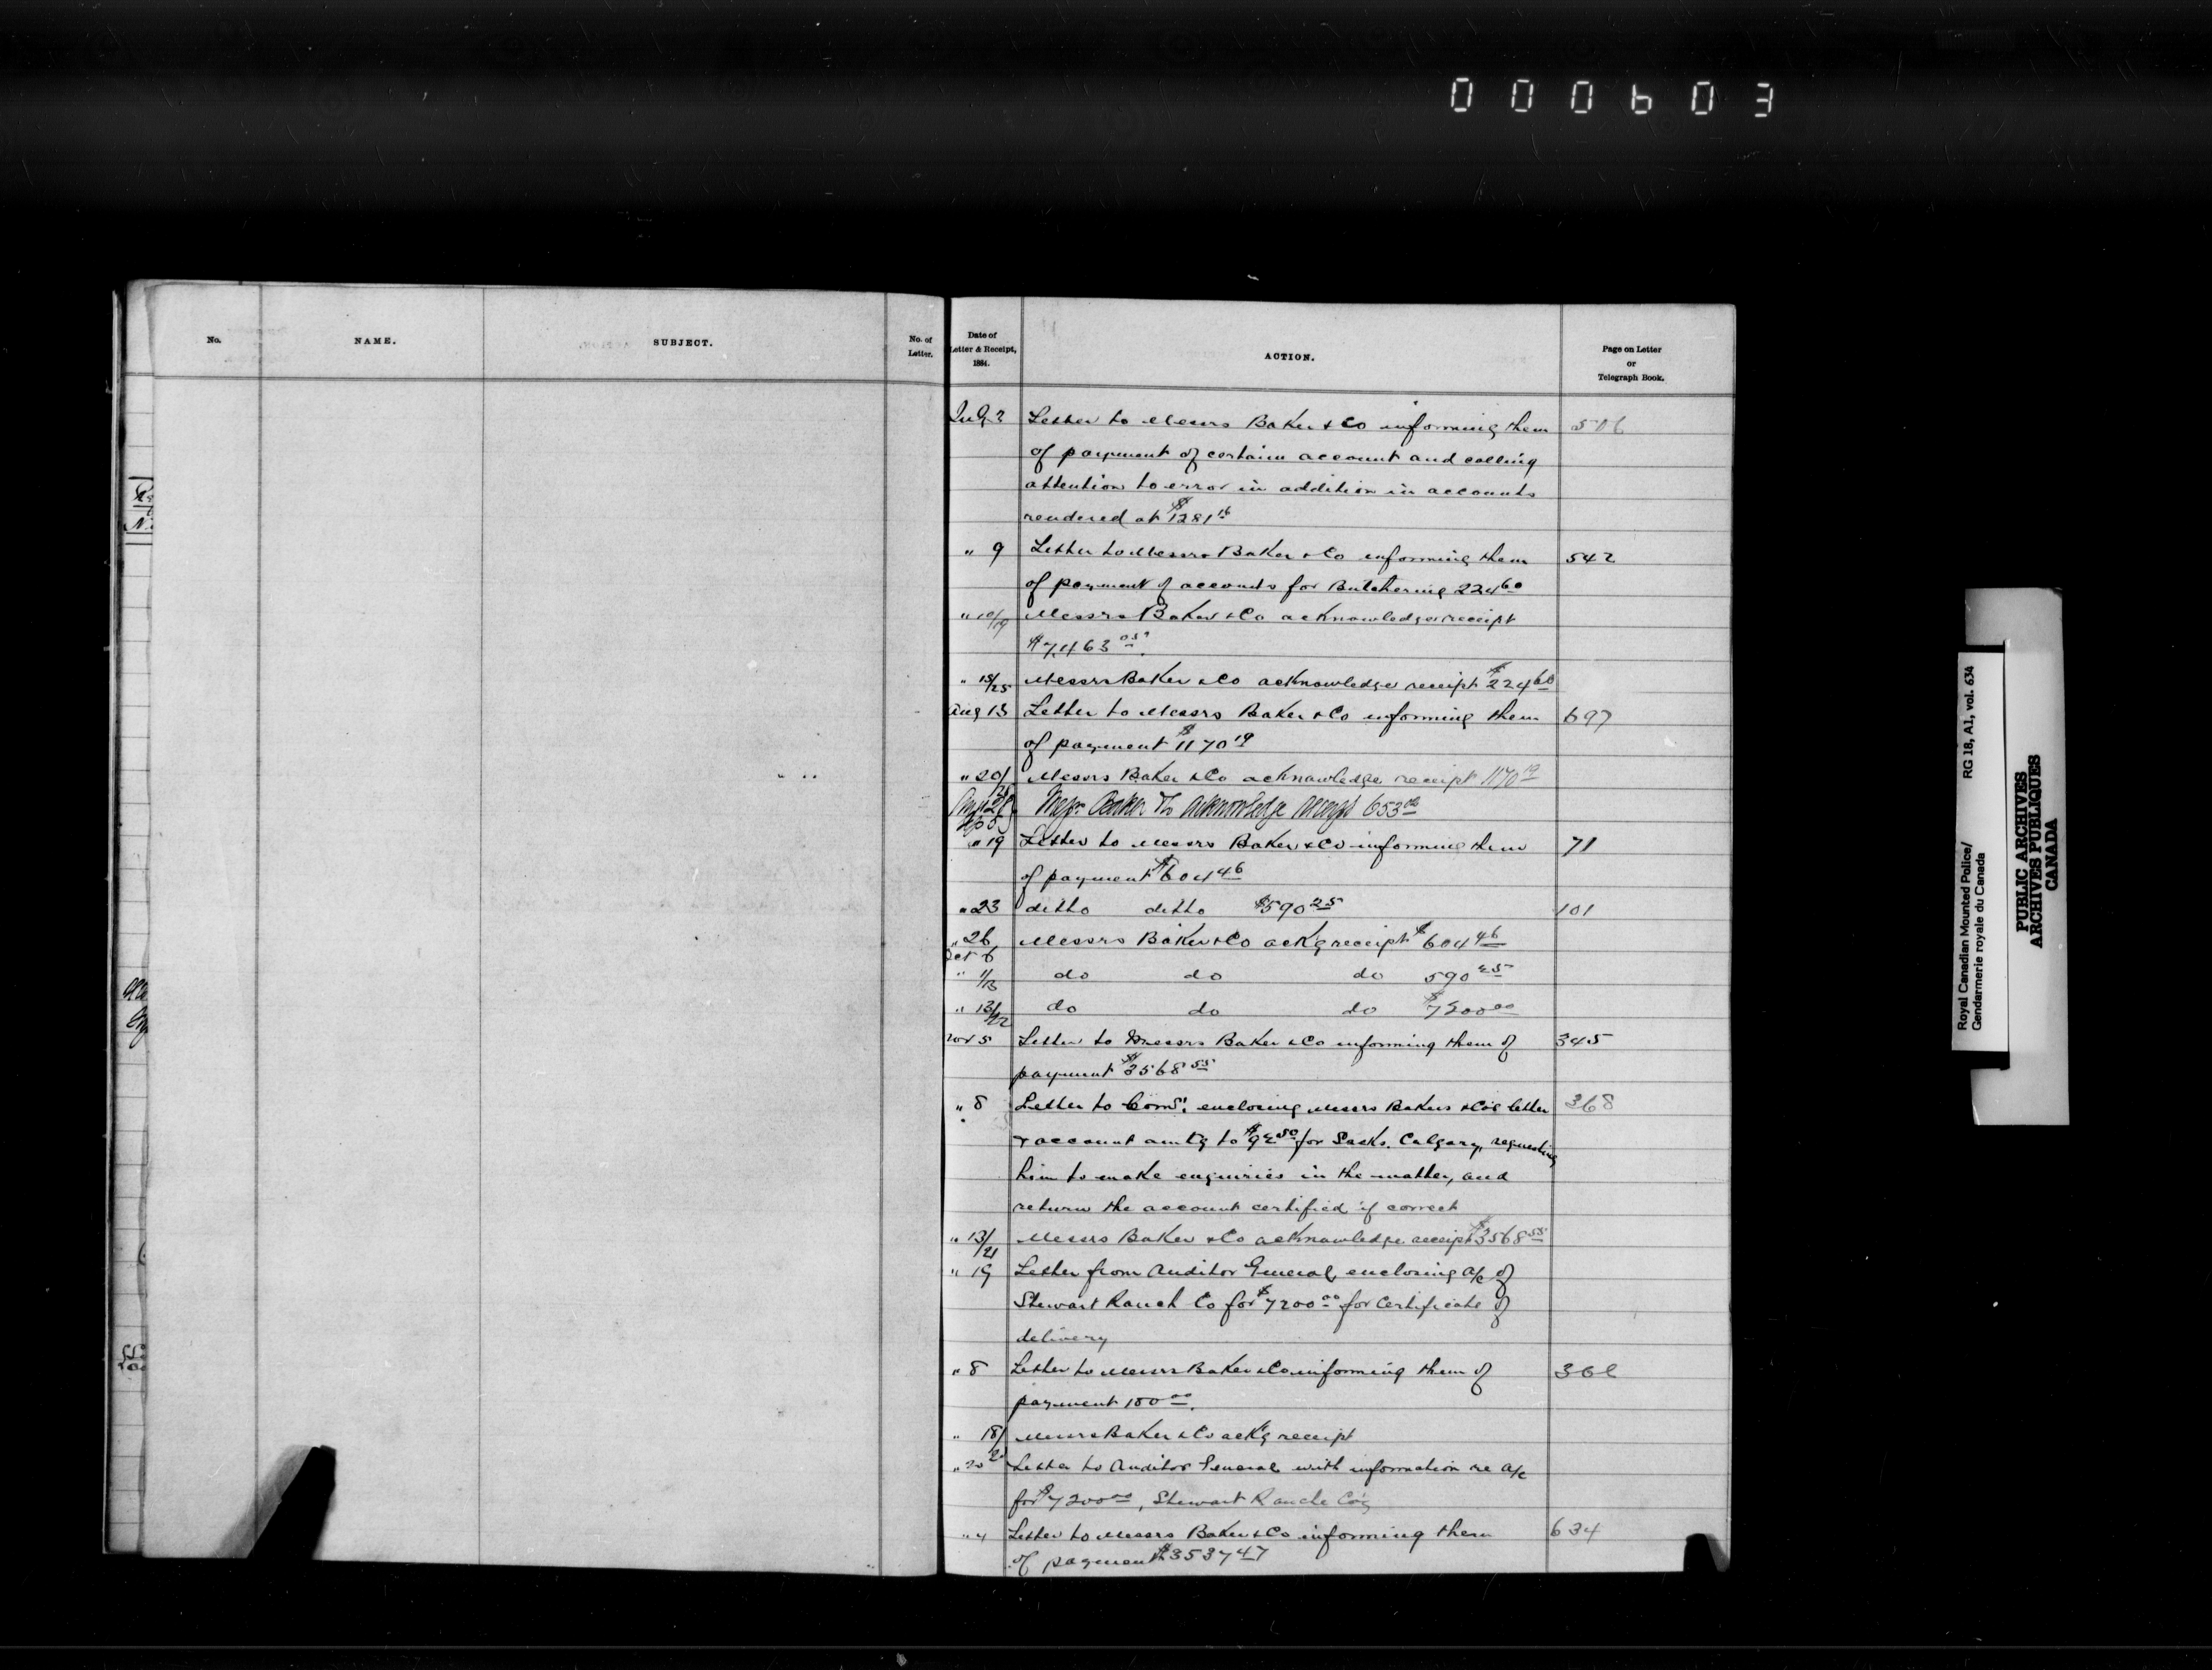 000603
No.
NAME.
SUBJECT.
No. of
Letter.
Date of
Letter & Receipt,
1884.
ACTION.
Page on Letter
or
Telegraph Book.
July 2 Letter to Messrs Baker & Co informing them 506
of payment of certain account and calling
attention to error in addition in accounts
rendered at $1281 16
" 9 Letter to Messrs Baker & Co informing them 542
of payment of accounts for Butchering 224 60
" 10/19 Messrs Baker & Co acknowledge receipt
$7,463 05.
" 15/25 Messrs Baker & Co acknowledge receipt $224 60
Aug 13 Letter to Messrs Baker & Co informing them 697
of payment $1170 19
" 20/25 Messrs Baker & Co acknowledge receipt 1170 19
Messr Baker & Co acknowledge receipt 653
" 19 Letter to Messrs Baker & Co informing them 71
of payment $604 46
" 23 ditto ditto $590 25 101
" 26 Messrs Baker & Co ackg receipt $604 46
Oct 6
" 1/13 do do do 590 25
" 13/22 do do do $7200 00
Nov 5 Letter to Messrs Baker & Co informing them of 345
payment $3568 55
" 8 Letter to Comr. enclosing Messrs Bakers & Co's letter 368
& account amtg to $92 50 for Sacks. Calgary, requesting
him to make enquiries in the matter, and
return the account certified if correct
" 13/21 Messrs Baker & Co acknowledge receipt $3568 55
" 19 Letter from Auditor General, enclosing a/c of
Stewart Ranch Co for $7200 00 for Certificate of
delivery
" 8 Letter to Messrs Baker & Co informing them of
payment 100 00.
" 18/ Messrs Baker & Co ackg receipt
" 20 Letter to Auditor General with information re a/c
for $7200 00, Stewart Ranche Co's
" 4 Letter to Messrs Baker & Co informing them 634
of payment $3537 47
Royal Canadian Mounted Police/
Gendarmerie royale du Canada
RG 18, A1, vol. 634
PUBLIC ARCHIVES
ARCHIVES PUBLIQUES
CANADA